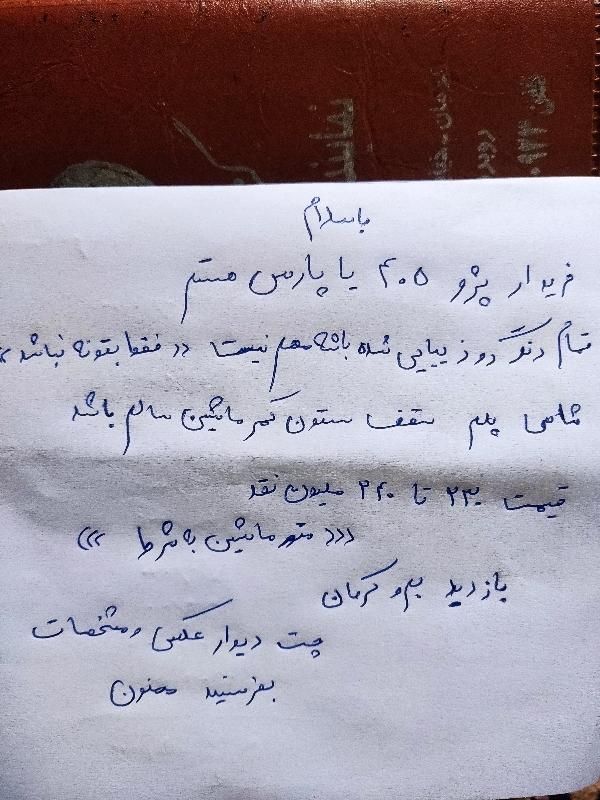 نمایندگی
کرمان
روبر
تلفن ۰۹۲۳
باسلام
خریدار پژو ۴۰۵ یا پارس هستم
تمام رنگ دوز یبایی شده باشه مهم نیست «فقط بقونه نباشد»
شاسی پلم سقف ستون کمر ماشین سالم باشد
قیمت ۲۳۰ تا ۲۴۰ ملیون نقد
((( متور ماشین به شرط )))
بازدید بم و کرمان
چت دیوار عکس و مشخصات
بفرستید ممنون